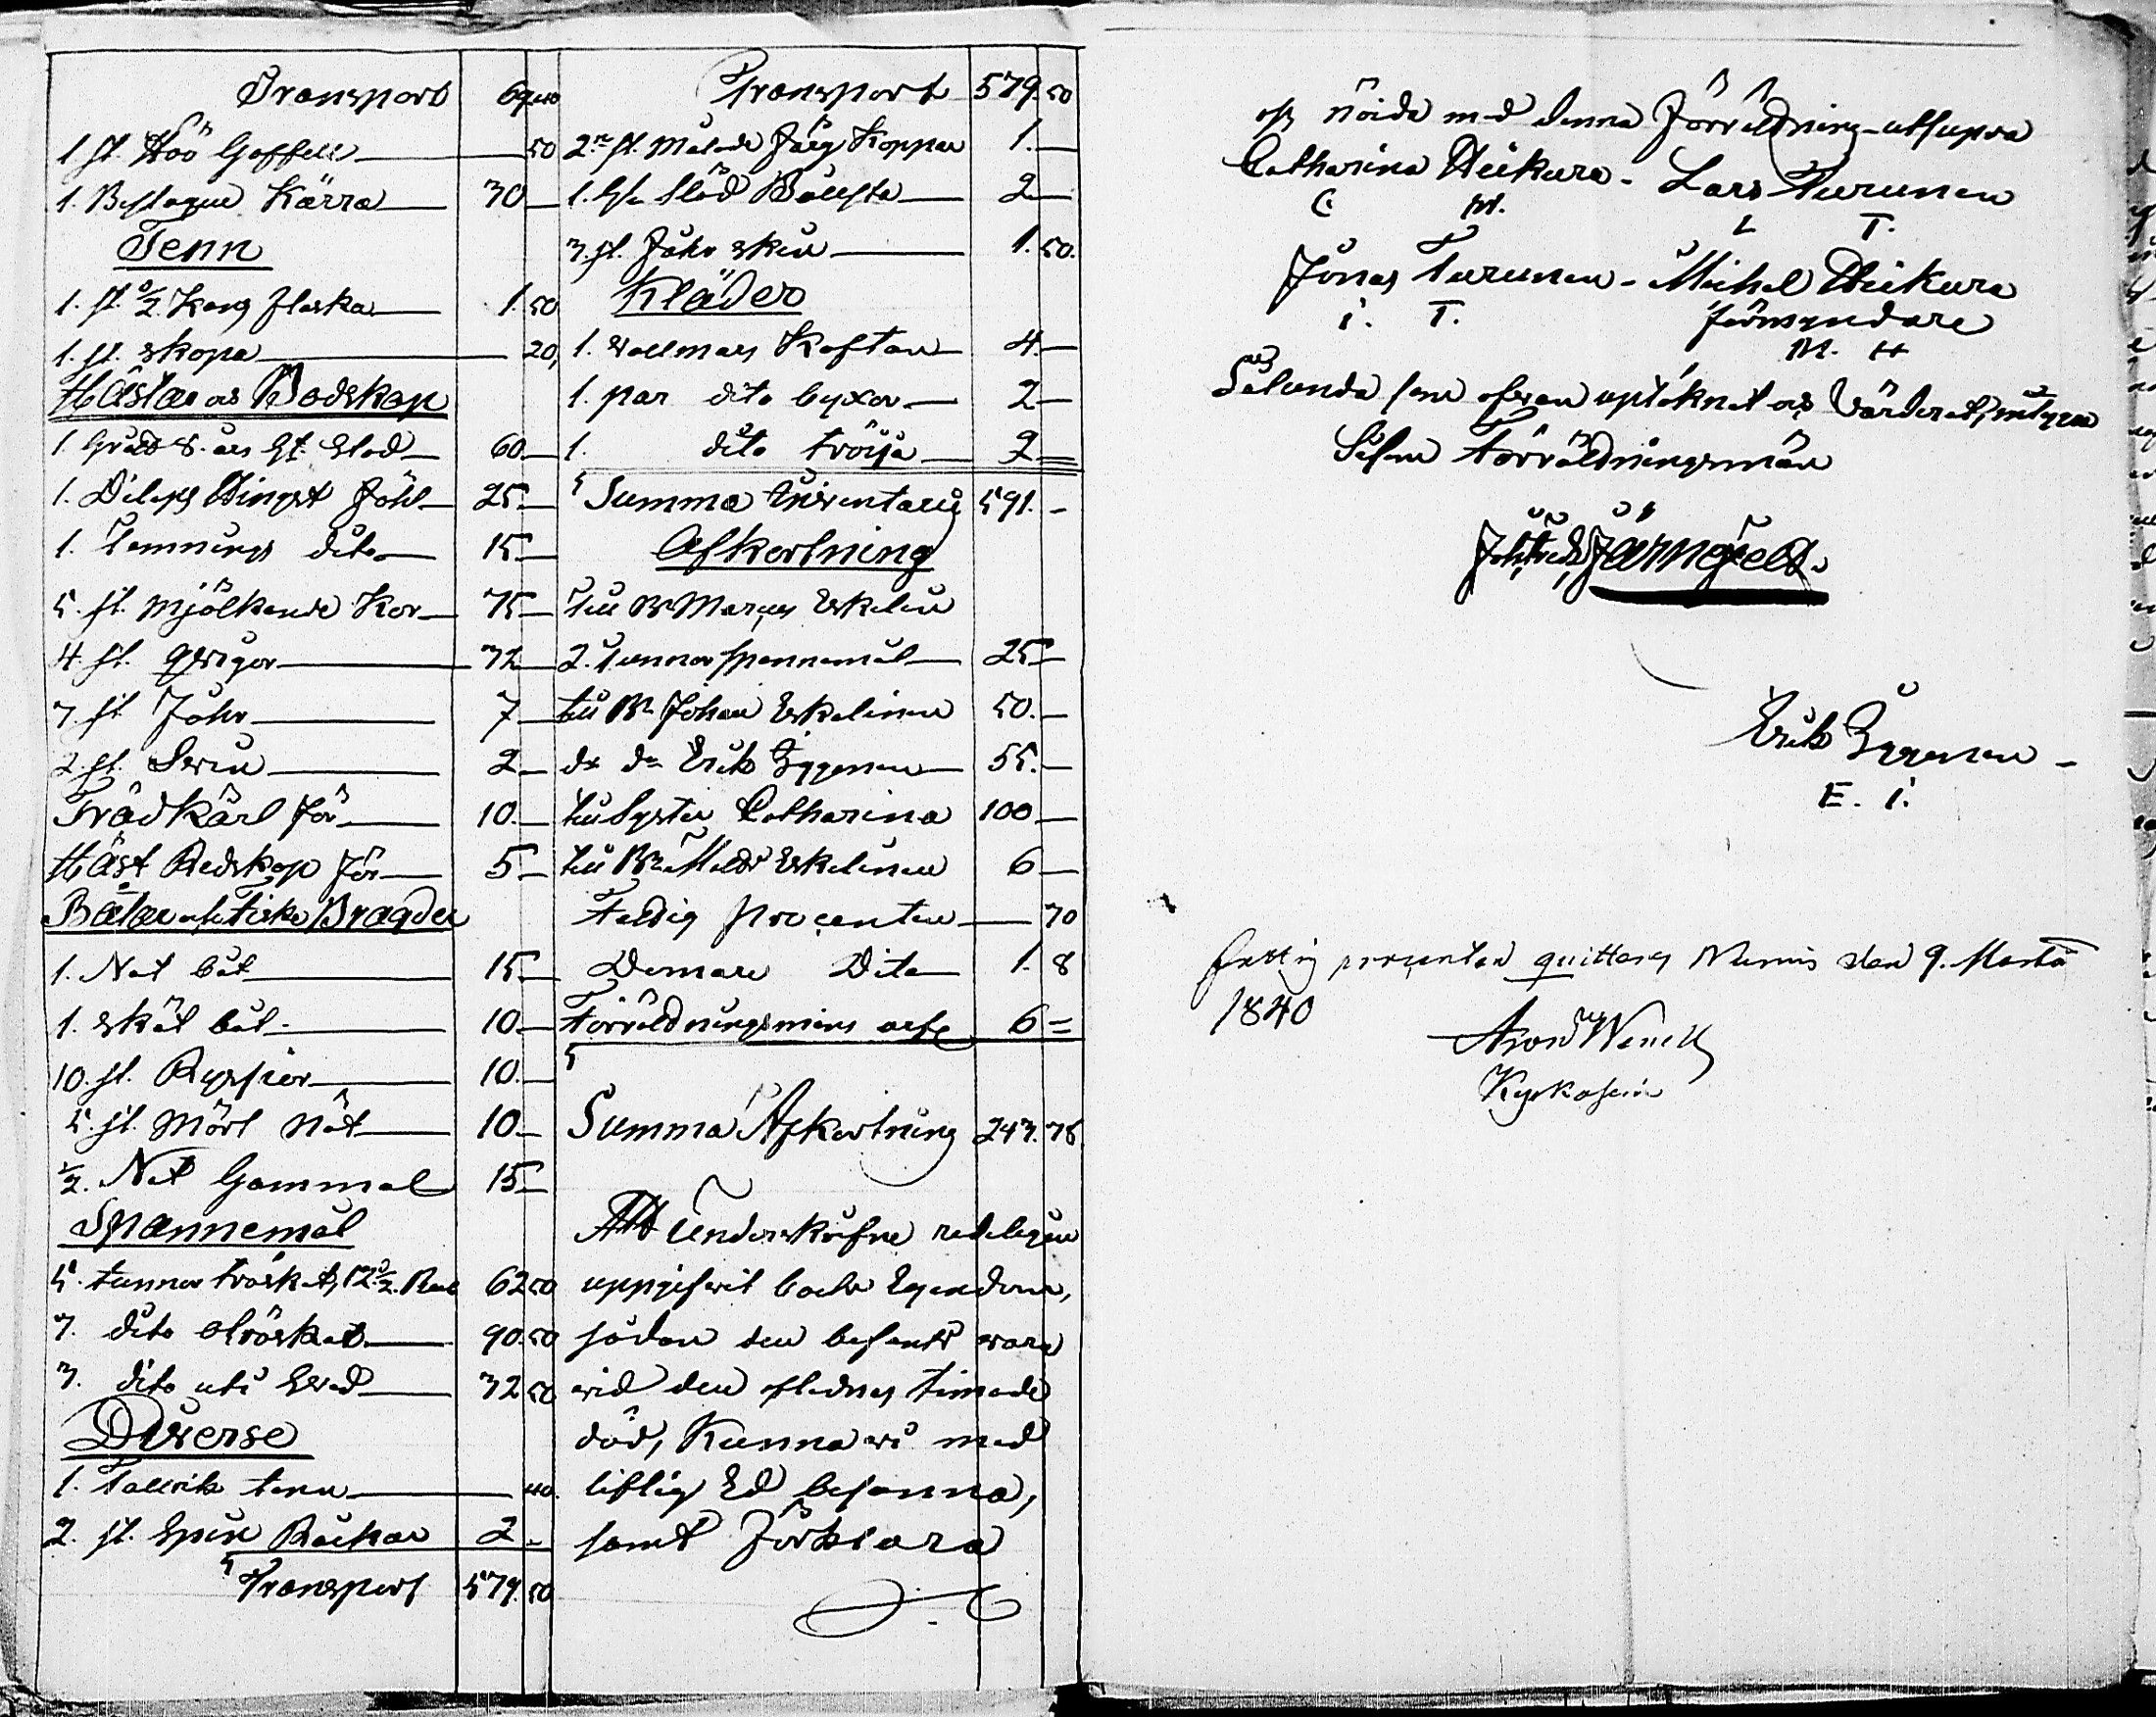 Transport 69.40
1 st. Höö Gaffell 50
1. Beslagen Kärra 30
Tenn
1. st. ½ Kan flaska 1.50
1. st. skopa 20
Hästar och Bodskap
1. 8. års Gl. Stod 60
1. Hingst Föhl 25
1. dito 15
5. st. Mjölkande Kor 75
4. st. Qwigor 32
7. st. Fåhr 7
2. st. Swin 2
Trädkärl för 10
Häst Redskap för 5
Båtar och Fiske Bragder
1. Not båt 15
1. sköt båt 10
10. st. Ryssior 10
5. st. Mört Nät 10
½. Not Gammal 15
Spannemål
5. tunnor tröskat, 12½ Rub 62 50
7. dito otröskat 90.50
3. dito uti 32 50
Diverse
1. Tallrik tenn 40.
2. st. 2
Transport 579.50
Transport 579.50
2ne st. Målade Koppar 1.
1. 2
3. st. Fåhr skin 1.50.
Kläder
1. wallmars Kaftan 4
1. par dito byxor 2
1. dito tröija 2
Summa Inventarii 591.
Afkortning
till Br Marcus Eskelin
2. Tunnor spannemål 25
till Br. Johan Eskelinen 50.
do do Erik Iggonen 55.
till Syster Catharina 100
till Br Matts Eskelinen 6
Fattig procenten 70
Domare Dito 1. 8
Förrättningsmans arfve 6
Summa Afkortning 243. 78
Att Underskrifne redeligen
uppgifwit boets Egendom,
sådan den befants wara
wid den aflednes timade
död, Kunna wi med
liflig Ed besanna,
samt förklara
oss nöida med denna förrättning - utsupra
Catharina Heikura - Lars Turunen
C. H. L T.
Jonas Turunen - Michel Heikura
i. T. förmyndare
M. H
Sålunda som ofwan uptäknat och Värderat, intyga
Förrättningsmän
Järnefelt.
Erik Iggonen
E. i.
fattig procenten quitteras Nurmis den 9. Martii
1840
Aron Wenell